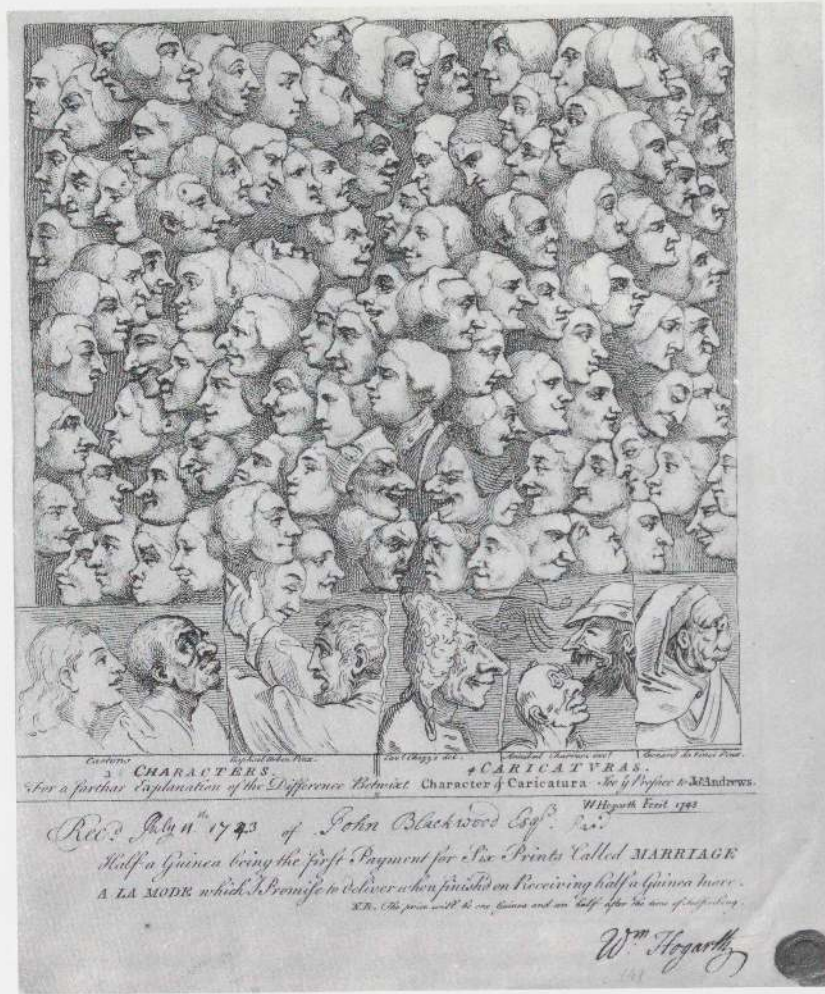 Cartons Raphael Urbin Pinx. Cavr. Ghezzi del. Annibal Charraci Leonard da Vinci Pinx.
3 CHARACTERS. 4 CARICATURAS.
For a farthar Explanation of the Difference Betwixt Character & Caricatura See ye Preface to Jo. Andrews.
W Hogarth Fecit 1743
Rec'd July 11th 1743 of John Blackwood Esqr.
Half a Guinea being the first Payment for Six Prints Called MARRIAGE
A LA MODE which I Promise to deliver when finish'd on Receiving half a Guinea more.
N.B. The price will be one Guinea and an half after the time of Subscribing.
Wm Hogarth